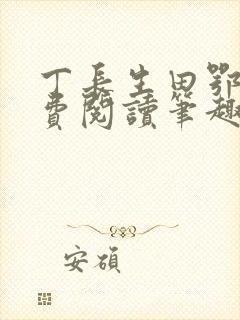 丁長生田鄂
費閱讀筆趣
安碩